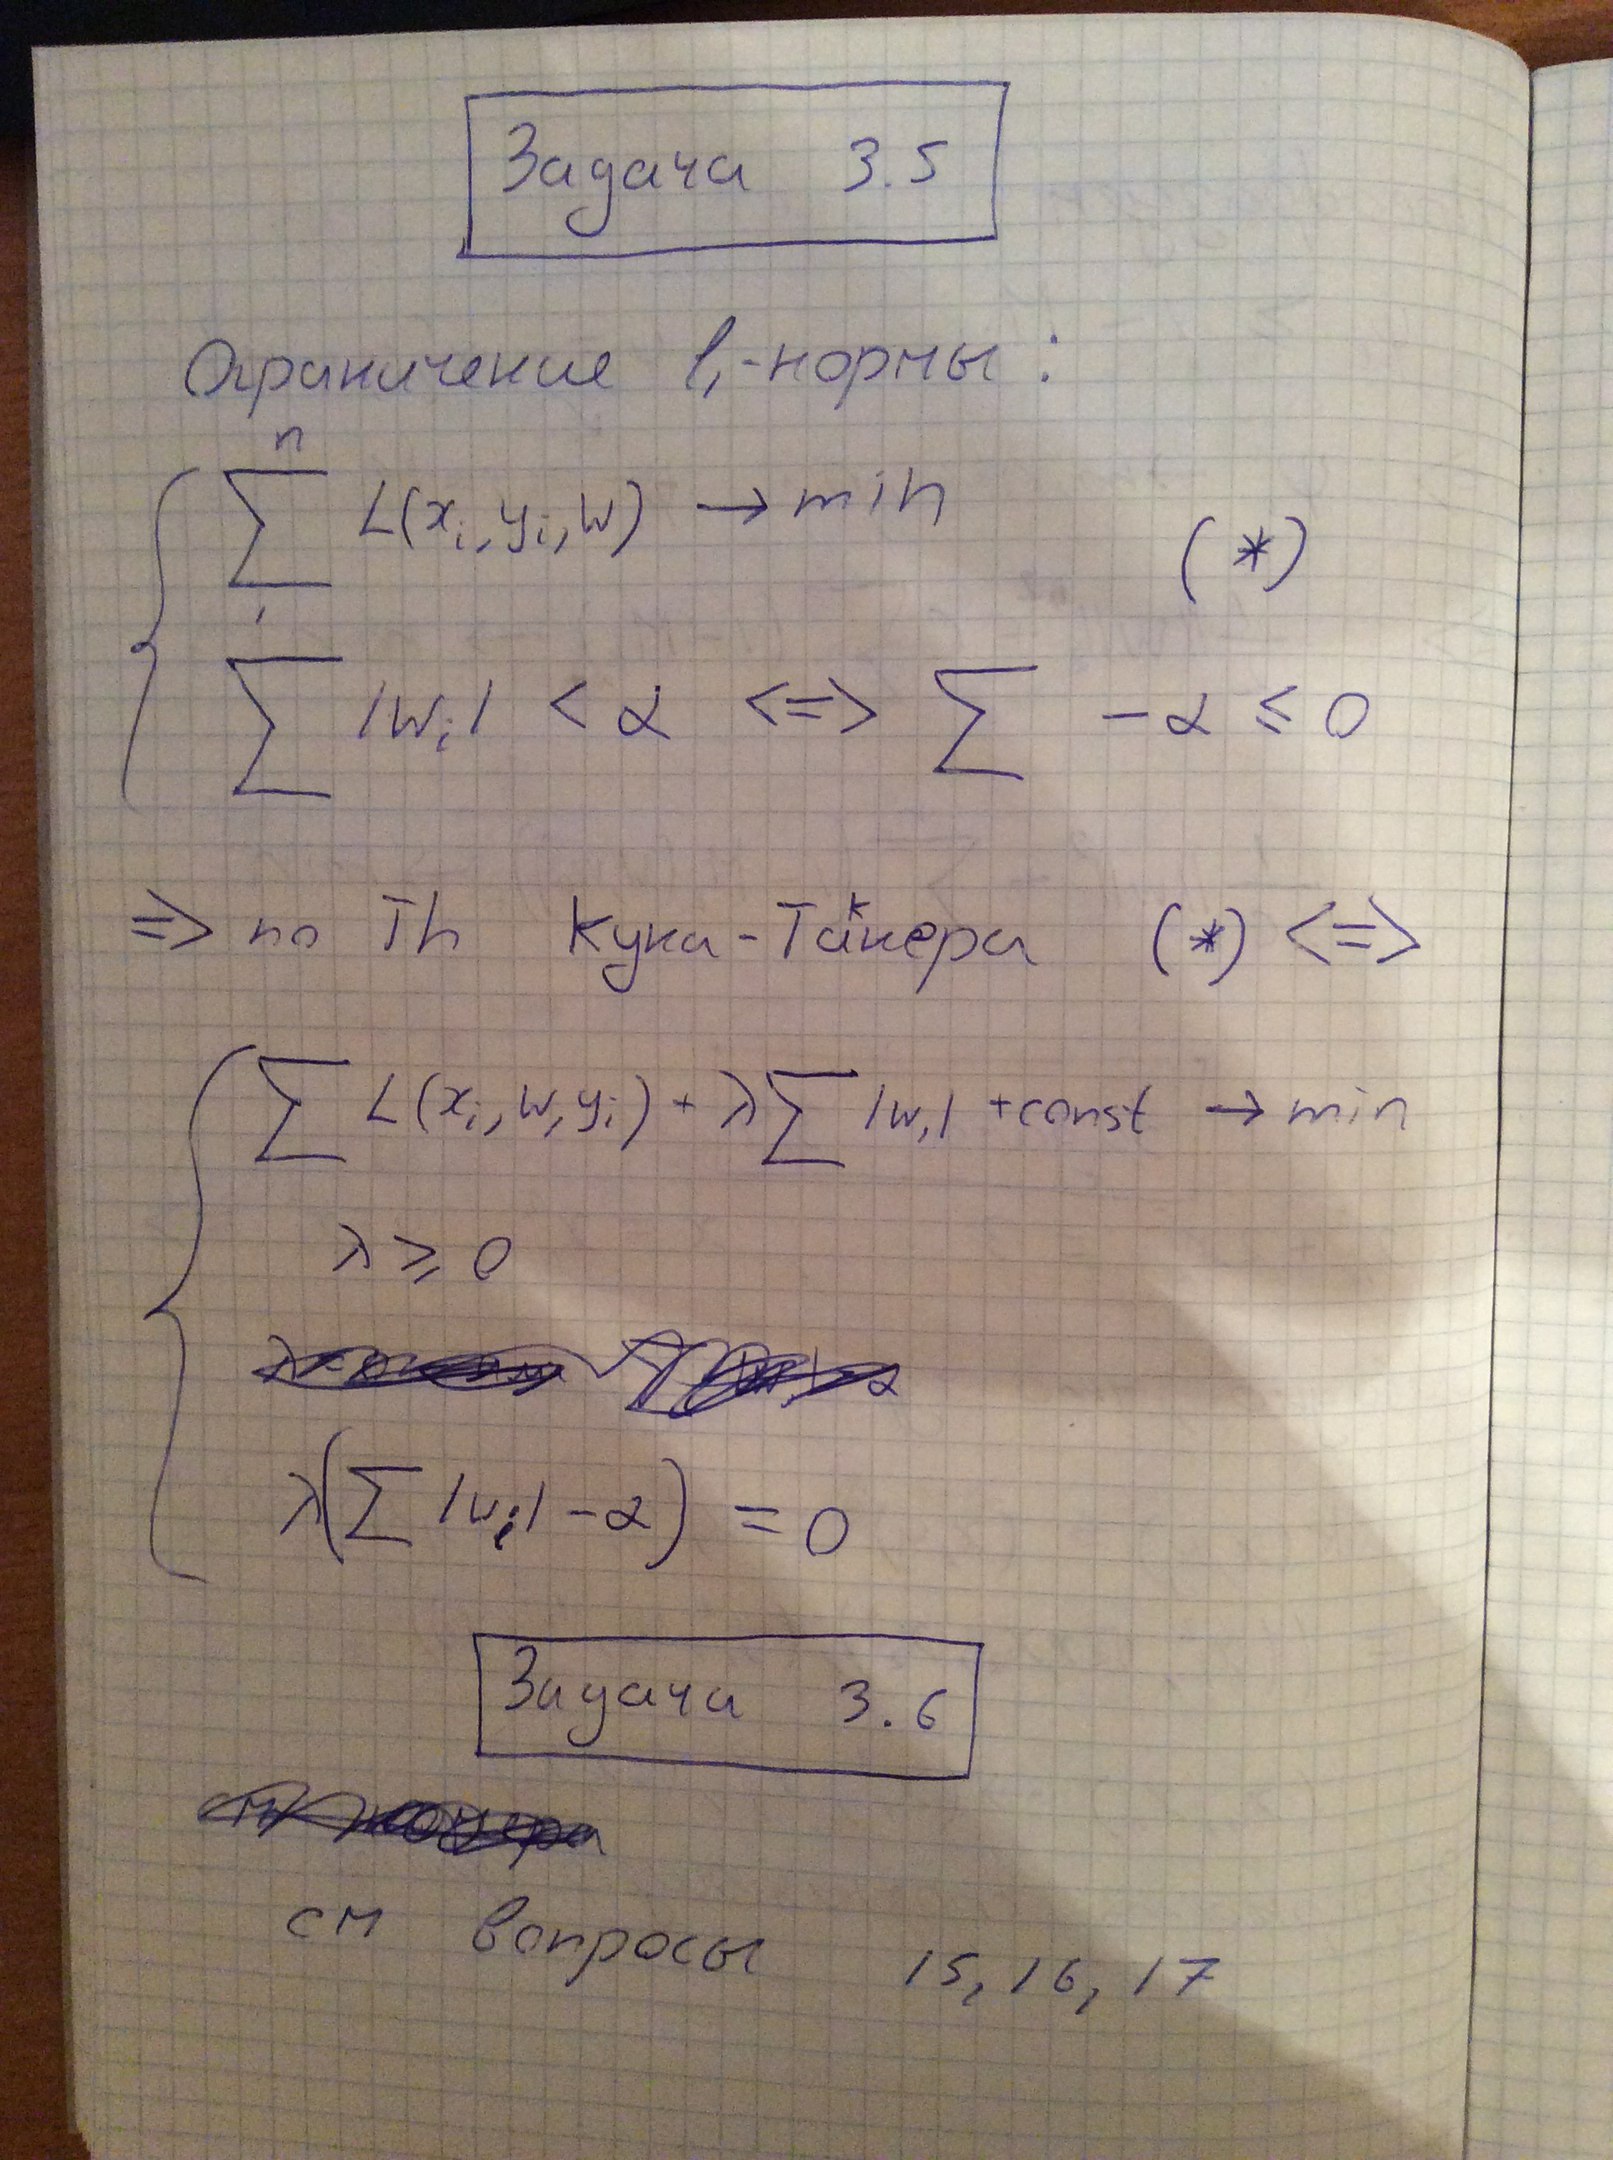 Задача 3.5
Ограничение l₁-нормы:
n
∑ L(xᵢ, yᵢ, w) → min (*)
1
∑ |wᵢ| < α <=> ∑ - α ≤ 0
=> по Th Куна-Таккера (*) <=>
∑ L(xᵢ, w, yᵢ) + λ∑ |wᵢ| + const → min
λ ≥ 0
λ(∑ |wᵢ| - α) = 0
Задача 3.6
см вопросы 15, 16, 17